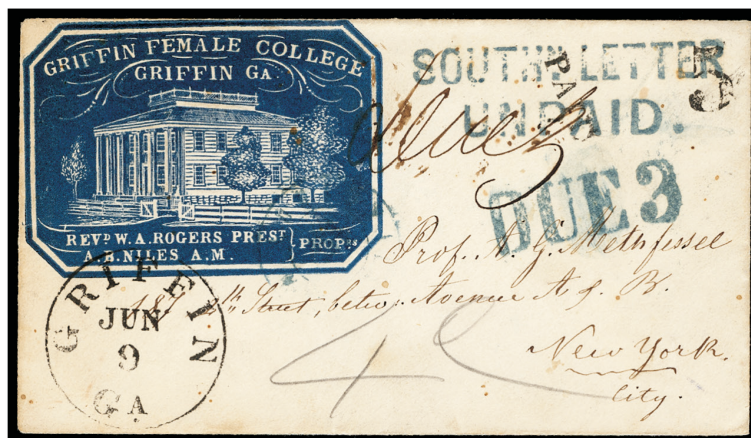 GRIFFIN FEMALE COLLEGE
GRIFFIN GA.
REVD W. A. ROGERS PREST
A. B. NILES A. M.
} PROPRS
SOUTHN. LETTER
UNPAID.
PAID
5
due 3
DUE 3
GRIFFIN
JUN
9
GA
Prof. A. G. Methfessel
Street, betw. Avenue A & B.
New York.
City.